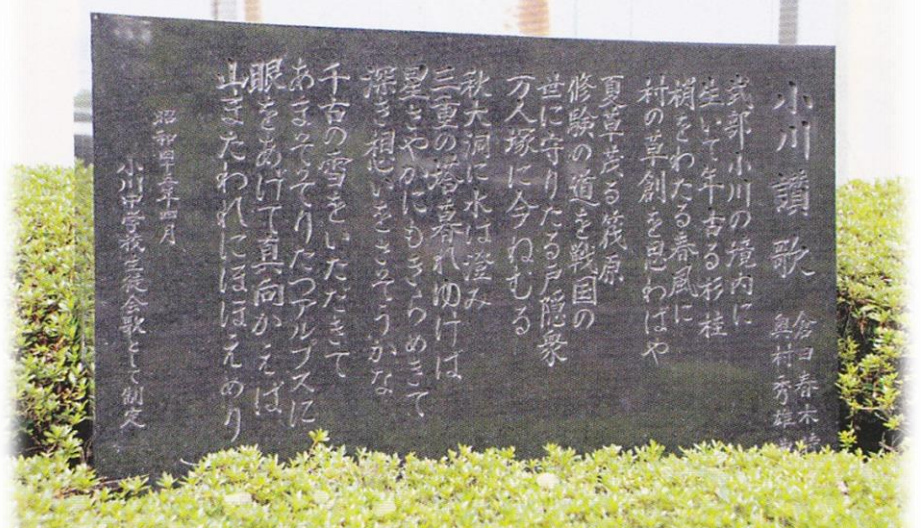 小川讃歌
倉田春木
奥村秀雄
式部小川の境内に
生いて年古る杉桂
梢をわたる春風に
村の草創を思わばや
夏草茂る筏原
修験の道を戦国の
世に守りたる戸隠衆
万人塚に今ねむる
秋大洞に水は澄み
三重の塔暮れゆけば
星さやかにもきらめきて
深き想いをさそうかな
千古の雪をいただきて
あまそゝりたつアルプスに
眼をあげて真向かえば
山またわれにほほえめり
昭和四十年四月
小川中学校生徒会歌として制定